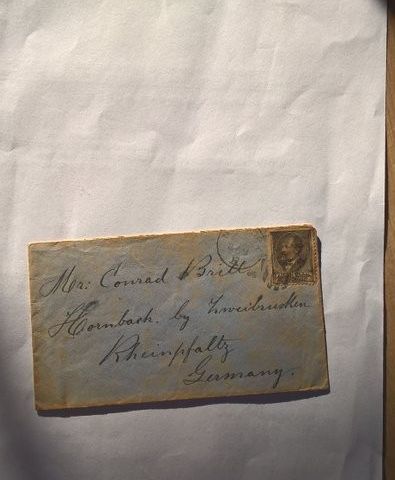 Mr: Conrad Britt
Hornbach. by Zweibrucken
Rheinpfaltz
Germany.